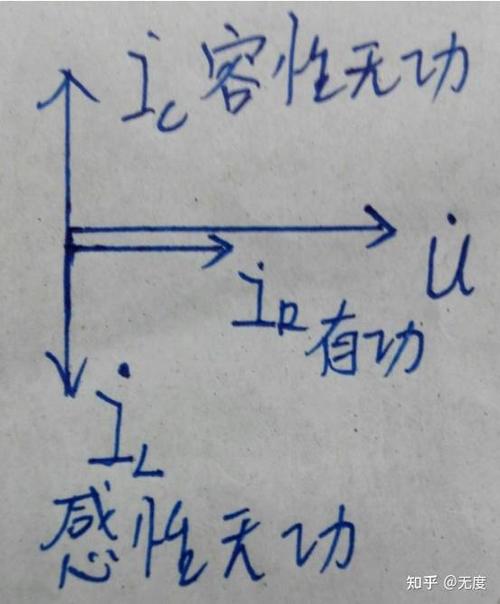 İC 容性无功
U̇
İR 有功
İL
感性无功
知乎 @无度